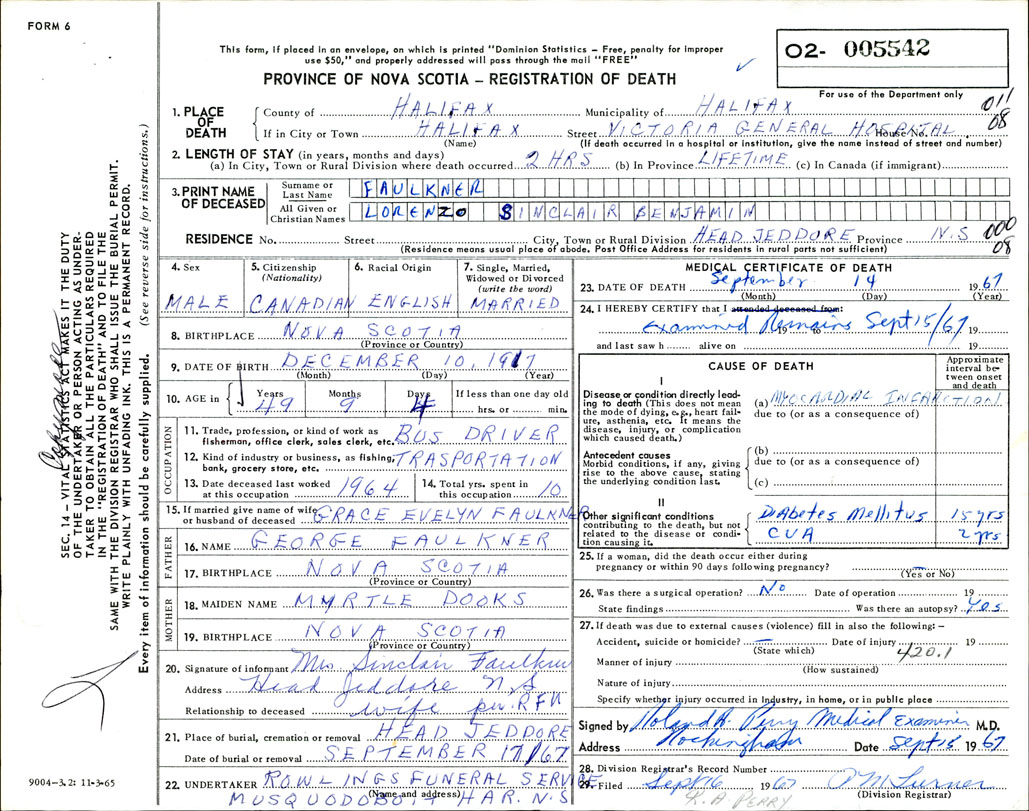 FORM 6
This form, if placed in an envelope, on which is printed "Dominion Statistics – Free, penalty for improper
use $50," and properly addressed will pass through the mail "FREE"
O2- 005542
PROVINCE OF NOVA SCOTIA – REGISTRATION OF DEATH
For use of the Department only
011
08
1. PLACE OF DEATH
County of HALIFAX Municipality of HALIFAX
If in City or Town HALIFAX Street VICTORIA GENERAL HOSPITAL House No.
(Name) (If death occurred in a hospital or institution, give the name instead of street and number)
2. LENGTH OF STAY (in years, months and days)
(a) In City, Town or Rural Division where death occurred 2 HRS (b) In Province LIFETIME (c) In Canada (if immigrant)
3. PRINT NAME OF DECEASED
Surname or Last Name FAULKNER
All Given or Christian Names LORENZO SINCLAIR BENJAMIN
RESIDENCE No. Street City, Town or Rural Division HEAD JEDDORE Province N.S 000
(Residence means usual place of abode. Post Office Address for residents in rural parts not sufficient) 08
4. Sex MALE
5. Citizenship (Nationality) CANADIAN
6. Racial Origin ENGLISH
7. Single, Married, Widowed or Divorced (write the word) MARRIED
8. BIRTHPLACE NOVA SCOTIA
(Province or Country)
9. DATE OF BIRTH DECEMBER 10, 1917
(Month) (Day) (Year)
10. AGE in Years 49 Months 9 Days 4 If less than one day old
hrs. or min.
OCCUPATION
11. Trade, profession, or kind of work as fisherman, office clerk, sales clerk, etc. BUS DRIVER
12. Kind of industry or business, as fishing, bank, grocery store, etc. TRASPORTATION
13. Date deceased last worked at this occupation 1964 14. Total yrs. spent in this occupation 10
15. If married give name of wife or husband of deceased GRACE EVELYN FAULKNER
FATHER
16. NAME GEORGE FAULKNER
17. BIRTHPLACE NOVA SCOTIA
(Province or Country)
MOTHER
18. MAIDEN NAME MYRTLE DOOKS
19. BIRTHPLACE NOVA SCOTIA
(Province or Country)
20. Signature of informant Mrs Sinclair Faulkner
Address Head Jeddore N.S
Relationship to deceased wife per. RFH
21. Place of burial, cremation or removal HEAD JEDDORE
Date of burial or removal SEPTEMBER 17/67
22. UNDERTAKER ROWLINGS FUNERAL SERVICE
(Name and address)
MUSQUODOBOIT HAR. N.S
MEDICAL CERTIFICATE OF DEATH
23. DATE OF DEATH September 14 1967
(Month) (Day) (Year)
24. I HEREBY CERTIFY that I attended deceased from:
Examined Remains Sept 15/67 19
and last saw h alive on 19
CAUSE OF DEATH
Approximate interval between onset and death
I
Disease or condition directly leading to death (This does not mean the mode of dying, e.g., heart failure, asthenia, etc. It means the disease, injury, or complication which caused death.)
(a) MYOCARDIAL INFARCTION
due to (or as a consequence of)
Antecedent causes
Morbid conditions, if any, giving rise to the above cause, stating the underlying condition last.
(b)
due to (or as a consequence of)
(c)
II
Other significant conditions contributing to the death, but not related to the disease or condition causing it.
Diabetes Mellitus 15 yrs
CVA 2 yrs
25. If a woman, did the death occur either during
pregnancy or within 90 days following pregnancy?
(Yes or No)
26. Was there a surgical operation? No Date of operation 19
State findings Was there an autopsy? Yes
27. If death was due to external causes (violence) fill in also the following: –
Accident, suicide or homicide? Date of injury 19
(State which)
420.1
Manner of injury
(How sustained)
Nature of injury
Specify whether injury occurred in Industry, in home, or in public place
Signed by Roland R. Perry Medical Examiner M.D.
Address Rockingham Date Sept 15 1967
28. Division Registrar's Record Number
29. Filed Sept 16 1967
(Division Registrar)
R A PERRY
SEC. 14 – VITAL STATISTICS ACT MAKES IT THE DUTY
OF THE UNDERTAKER OR PERSON ACTING AS UNDER-
TAKER TO OBTAIN ALL THE PARTICULARS REQUIRED
IN THE "REGISTRATION OF DEATH" AND TO FILE THE
SAME WITH THE DIVISION REGISTRAR WHO SHALL ISSUE THE BURIAL PERMIT.
WRITE PLAINLY WITH UNFADING INK. THIS IS A PERMANENT RECORD.
Every item of information should be carefully supplied. (See reverse side for instructions.)
9004-3.2: 11-3-65